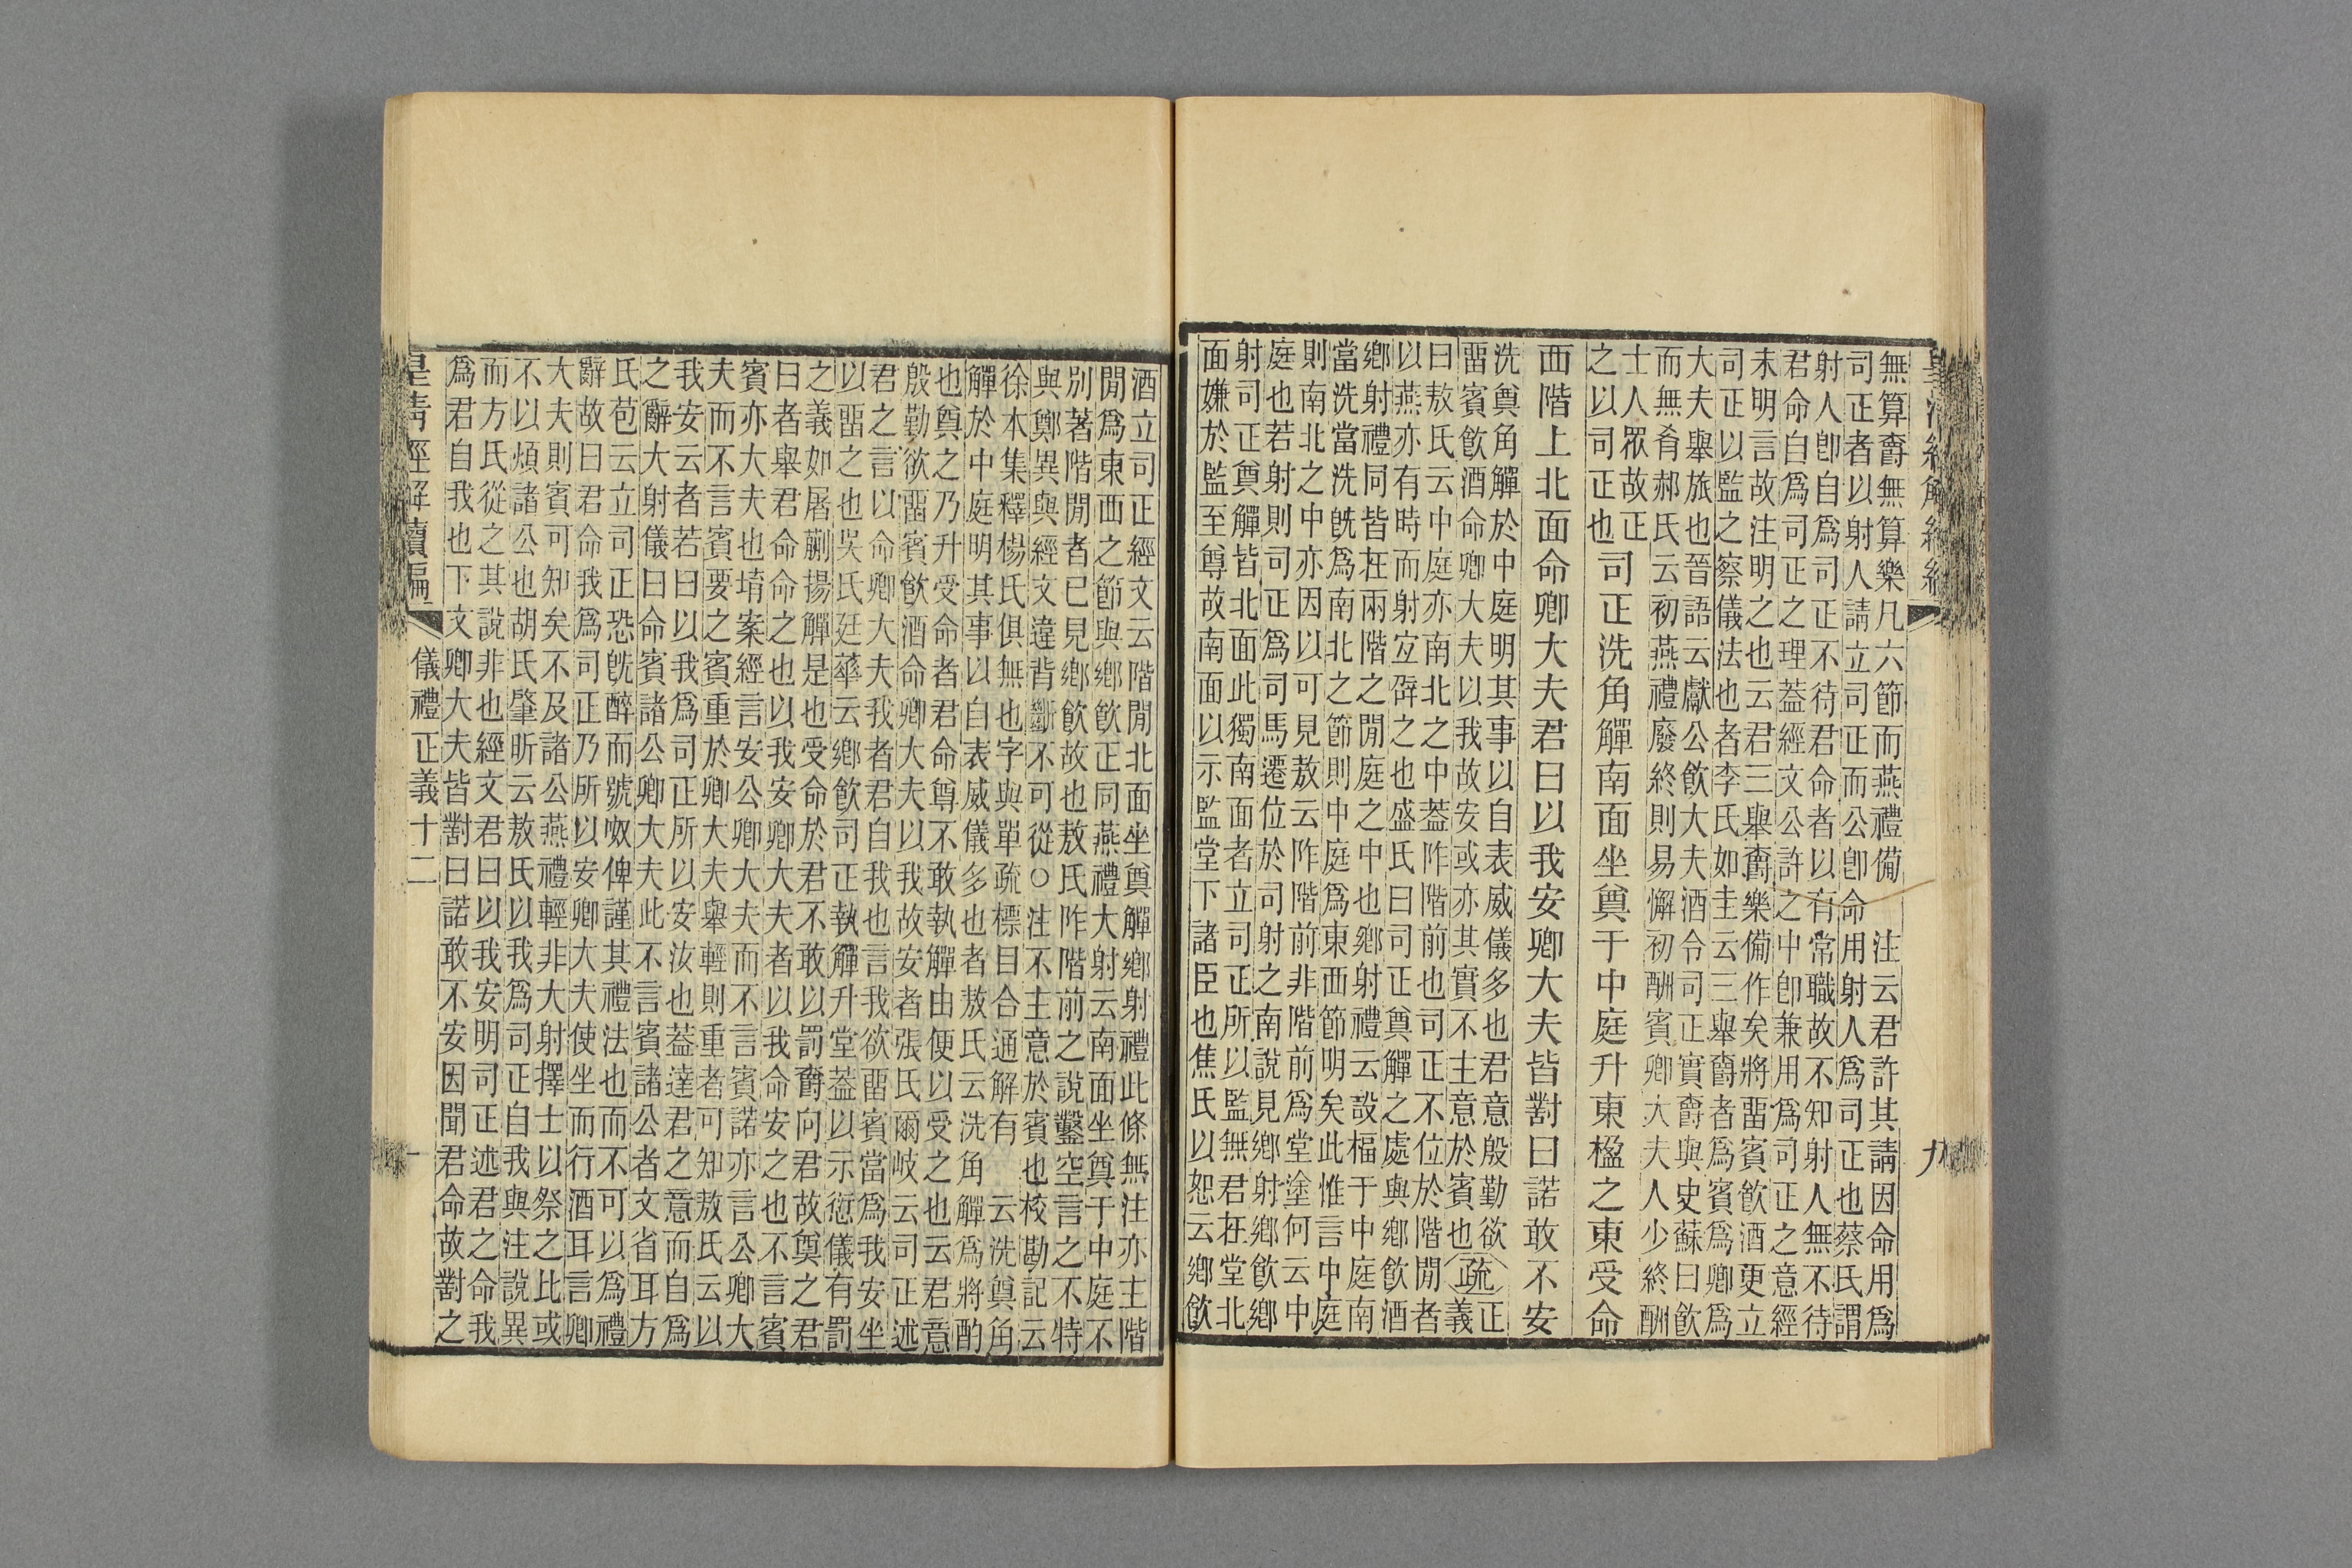 皇清經解續編
九
無算爵無算樂凡六節而燕禮備 注云君許其請因命用爲
司正者以射人請立司正而公卽命用射人爲司正也蔡氏謂
射人卽自爲司正不待君命者以有常職故不知射人無不待
君命白爲司正之理蓋經文公許之中卽兼用爲司正之意經
未明言故注明之也云君三舉爵樂備作矣將畱賓飮酒更立
司正以監之察儀法也者李氏如圭云三舉爵者爲賓爲卿爲
大夫舉旅也晉語云獻公飮大夫酒令司正實爵與史蘇曰飮
而無肴郝氏云初燕禮廢終則易懈初酬賓卿大夫人少終酬
士人眾故正
之以司正也
司正洗角觶南面坐奠于中庭升東楹之東受命
西階上北面命卿大夫君曰以我安卿大夫皆對曰諾敢不安
洗奠角觶於中庭明其事以自表威儀多也君意殷勤欲
畱賓飮酒命卿大夫以我故安或亦其實不主意於賓也
疏正義
曰敖氏云中庭亦南北之中蓋阼階前也司正不位於階閒者
以燕亦有時而射宐辟之也盛氏曰司正奠觶之處與鄉飮酒
鄉射禮同皆在兩階之閒庭之中也鄉射禮云設楅于中庭南
當洗當洗旣爲南北之節則中庭爲東西節明矣此惟言中庭
則南北之中亦因以可見敖云阼階前非階前爲堂塗何云中
庭也若射則司正爲司馬遷位於司射之南說見鄉射鄉飮鄉
射司正奠觶皆北面此獨南面者立司正所以監無君在堂北
面嫌於監至尊故南面以示監堂下諸臣也焦氏以恕云鄉飮
酒立司正經文云階閒北面坐奠觶鄉射禮此條無注亦主階
閒爲東西之節與鄉飮正同燕禮大射云南面坐奠于中庭不
別著階閒者已見鄉飮故也敖氏阼階前之說鑿空言之不特
與鄭異與經文違背斷不可從○注不主意於賓也校勘記云
徐本集釋楊氏俱無也字與單疏標目合通解有 云洗奠角
觶於中庭明其事以自表威儀多也者敖氏云洗角觶爲將酌
也奠之乃升受命者君命尊不敢執觶由便以受之也云君意
殷勤欲畱賓飮酒命卿大夫以我故安者張氏爾岐云司正述
君之言以命卿大夫我者君自我也言我欲畱賓當爲我安坐
以畱之也吳氏廷華云鄉飮司正執觶升堂蓋以示愆儀有罰
之義如屠蒯揚觶是也受命於君不敢以罰爵向君故奠之君
曰者舉君命命之也以我安卿大夫者以我命安之也不言賓
賓亦大夫也堉案經言安公卿大夫而不言賓諾亦言公卿大
夫而不言賓要之賓重於卿大夫舉輕則重者可知敖氏云以
我安云者若曰以我爲司正所以安汝也蓋達君之意而自爲
之辭大射儀曰命賓諸公卿大夫此不言賓諸公者文省耳方
氏苞云立司正恐旣醉而號呶俾謹其禮法也而不可以爲禮
辭故曰君命我爲司正乃所以安卿大夫使坐而行酒耳言卿
大夫則賓可知矣不及諸公燕禮輕非大射擇士以祭之比或
不以煩諸公也胡氏肇昕云敖氏以我爲司正自我與注說異
而方氏從之其說非也經文君曰以我安明司正述君之命我
爲君自我也下文卿大夫皆對曰諾敢不安因聞君命故對之
皇清經解續編
儀禮正義十二